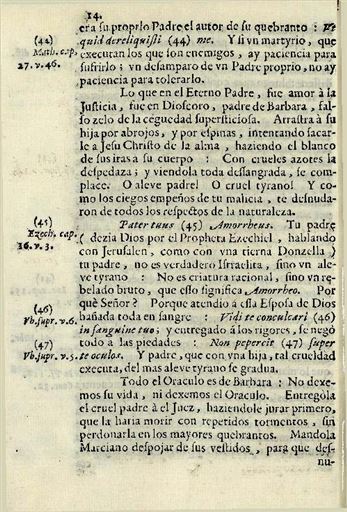 14.
era su proprio Padre el autor de su quebranto : Vt
(44) quid dereliquisti (44) me. Y si vn martyrio, que
Math. cap. executan los que son enemigos, ay paciencia para
27. v. 46. sufrirlo ; vn desamparo de vn Padre proprio, no ay
paciencia para tolerarlo.
Lo que en el Eterno Padre, fue amor à la
Justicia, fue en Dioscoro, padre de Barbara, fal-
so zelo de la ceguedad supersticiosa. Arrastra à su
hija por abrojos, y por espinas, intentando sacar-
le a Jesu Christo de la alma, haziendo el blanco
de sus iras a su cuerpo : Con crueles azotes la
despedaza ; y viendola toda desangrada, se com-
place. O aleve padre! O cruel tyrano! Y co-
mo los ciegos empeños de tu malicia, te desnuda-
ron de todos los respectos de la naturaleza.
(45) Pater tuus (45) Amorrheus. Tu padre
Ezech. cap. ( dezia Dios por el Propheta Ezechiel, hablando
16. v. 3. con Jerusalen, como con vna tierna Donzella )
tu padre, no es verdadero Israelita, sino vn ale-
ve tyrano : No es criatura racional, sino vn re-
belado bruto, que esso significa, Amorrheo. Por
què Señor ? Porque atendio à esta Esposa de Dios
(46) bañada toda en sangre : Vidi te conculcari (46)
Vb. supr. v. 6. in sanguine tuo; y entregado à los rigores, se negò
(47) todo a las piedades : Non pepercit (47) super
Vb. supr. v. 5. te oculos. Y padre, que con vna hija, tal crueldad
executa, del mas aleve tyrano se gradua.
Todo el Oraculo es de Barbara : No dexe-
mos su vida, ni dexemos el Oraculo. Entrególa
el cruel padre à el Juez, haziendole jurar primero,
que la haria morir con repetidos tormentos, sin
perdonarla en los mayores quebrantos. Mandola
Marciano despojar de sus vestidos, para que des-
nu-